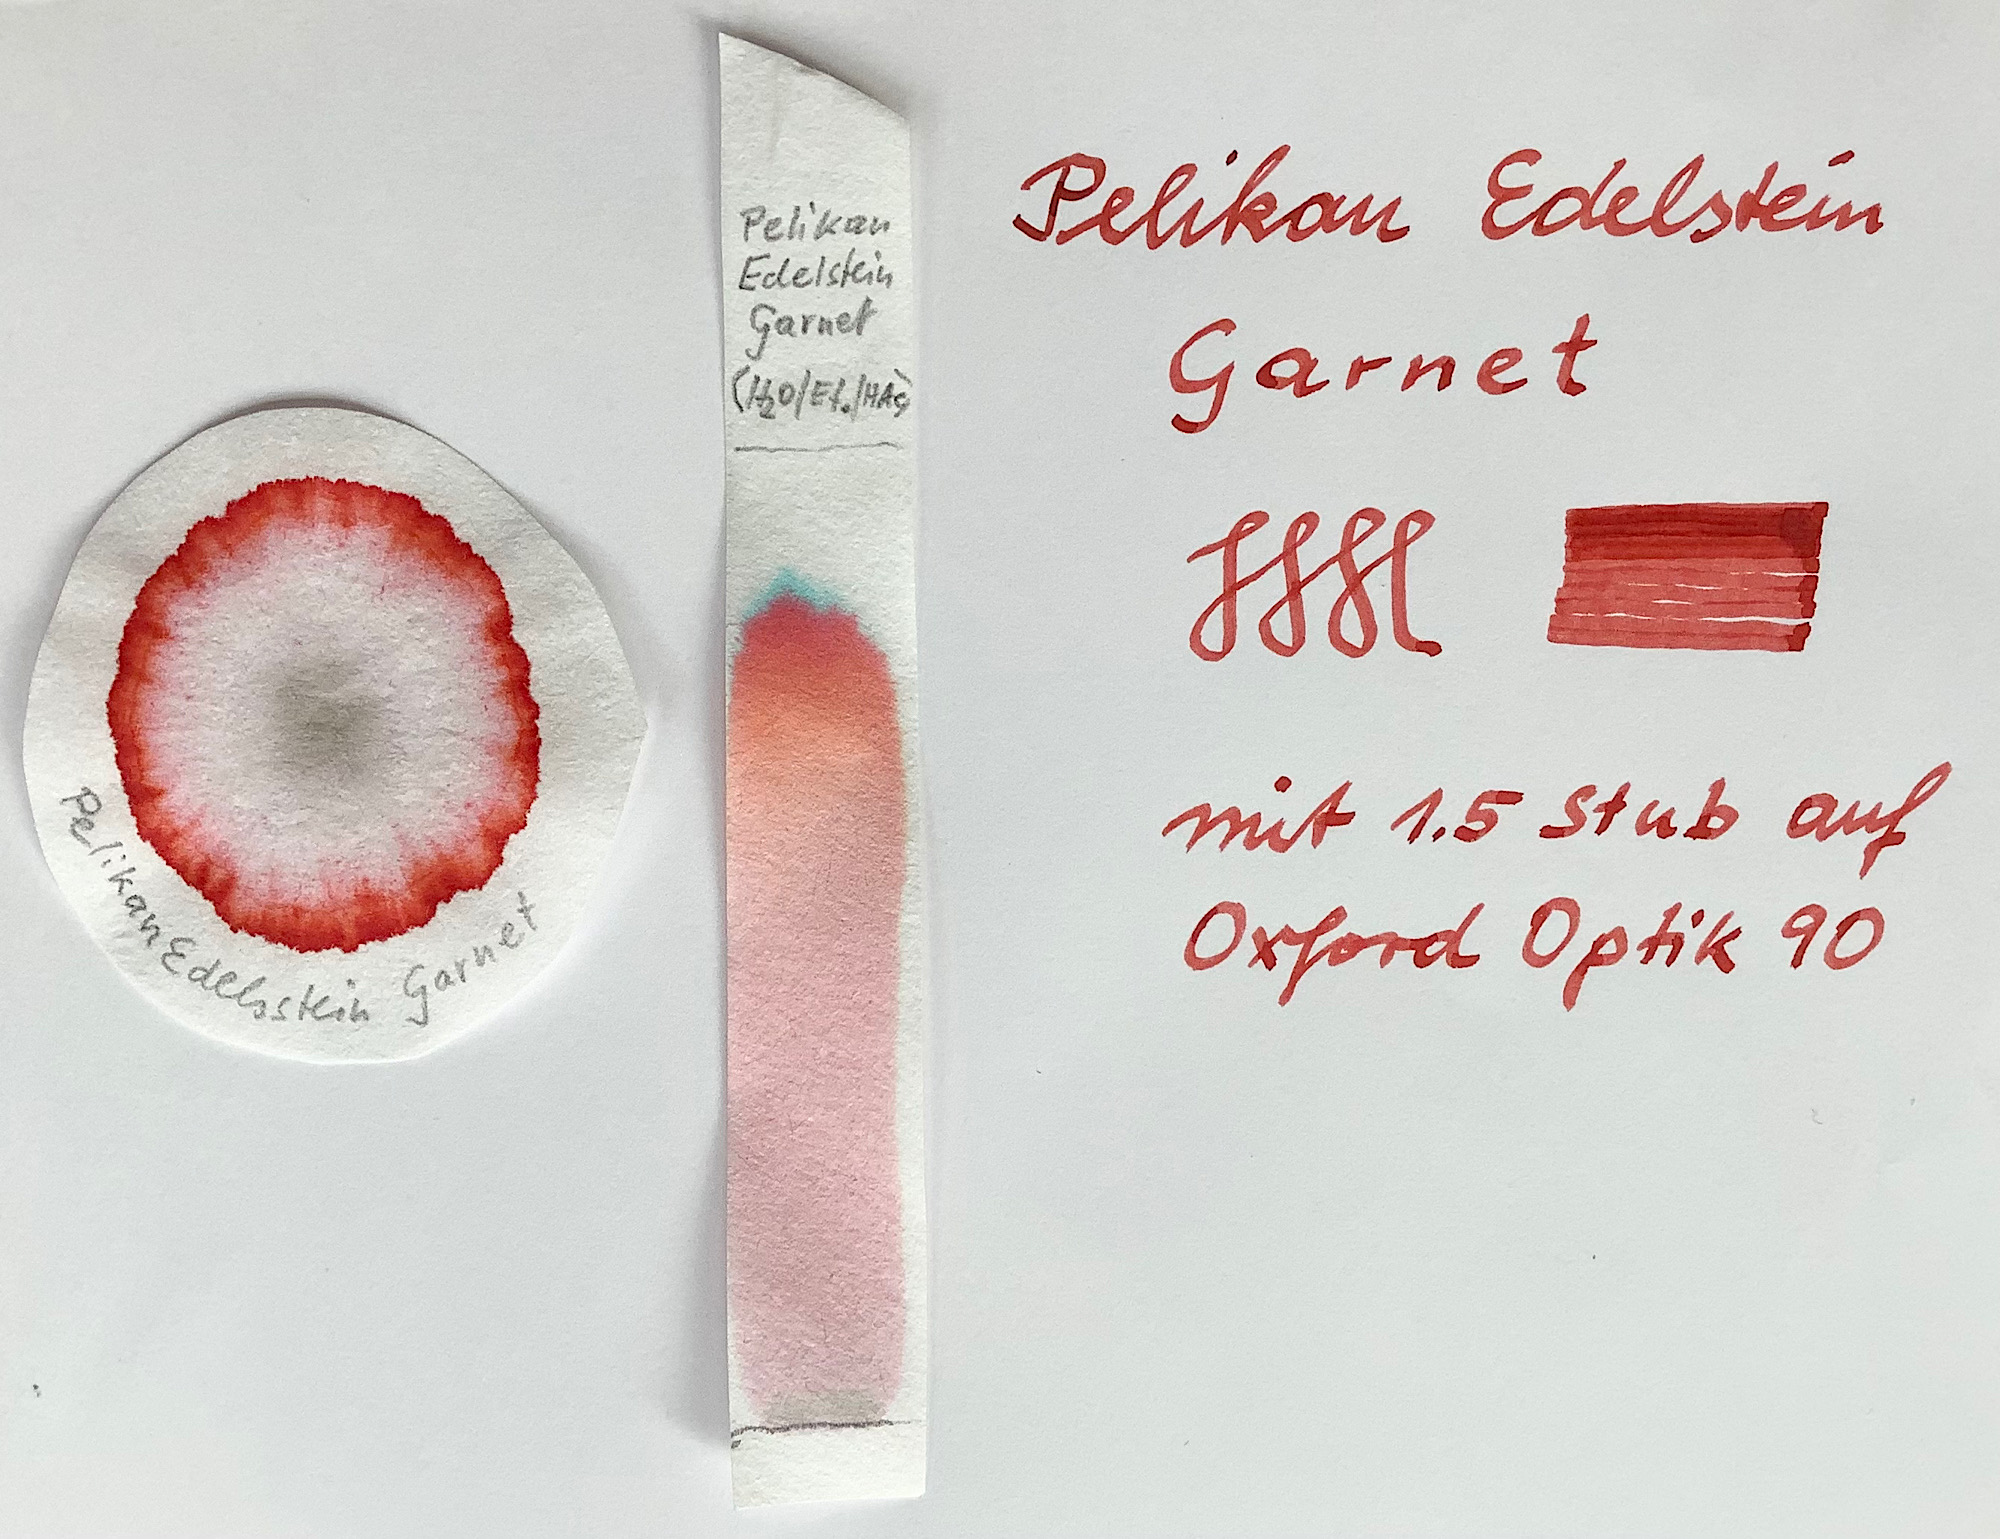 Pelikan Edelsstein Garnet
Pelikan
Edelstein
Garnet
(H₂O/Et./HAc)
Pelikan Edelstein
Garnet
mit 1.5 Stub auf
Oxford Optik 90